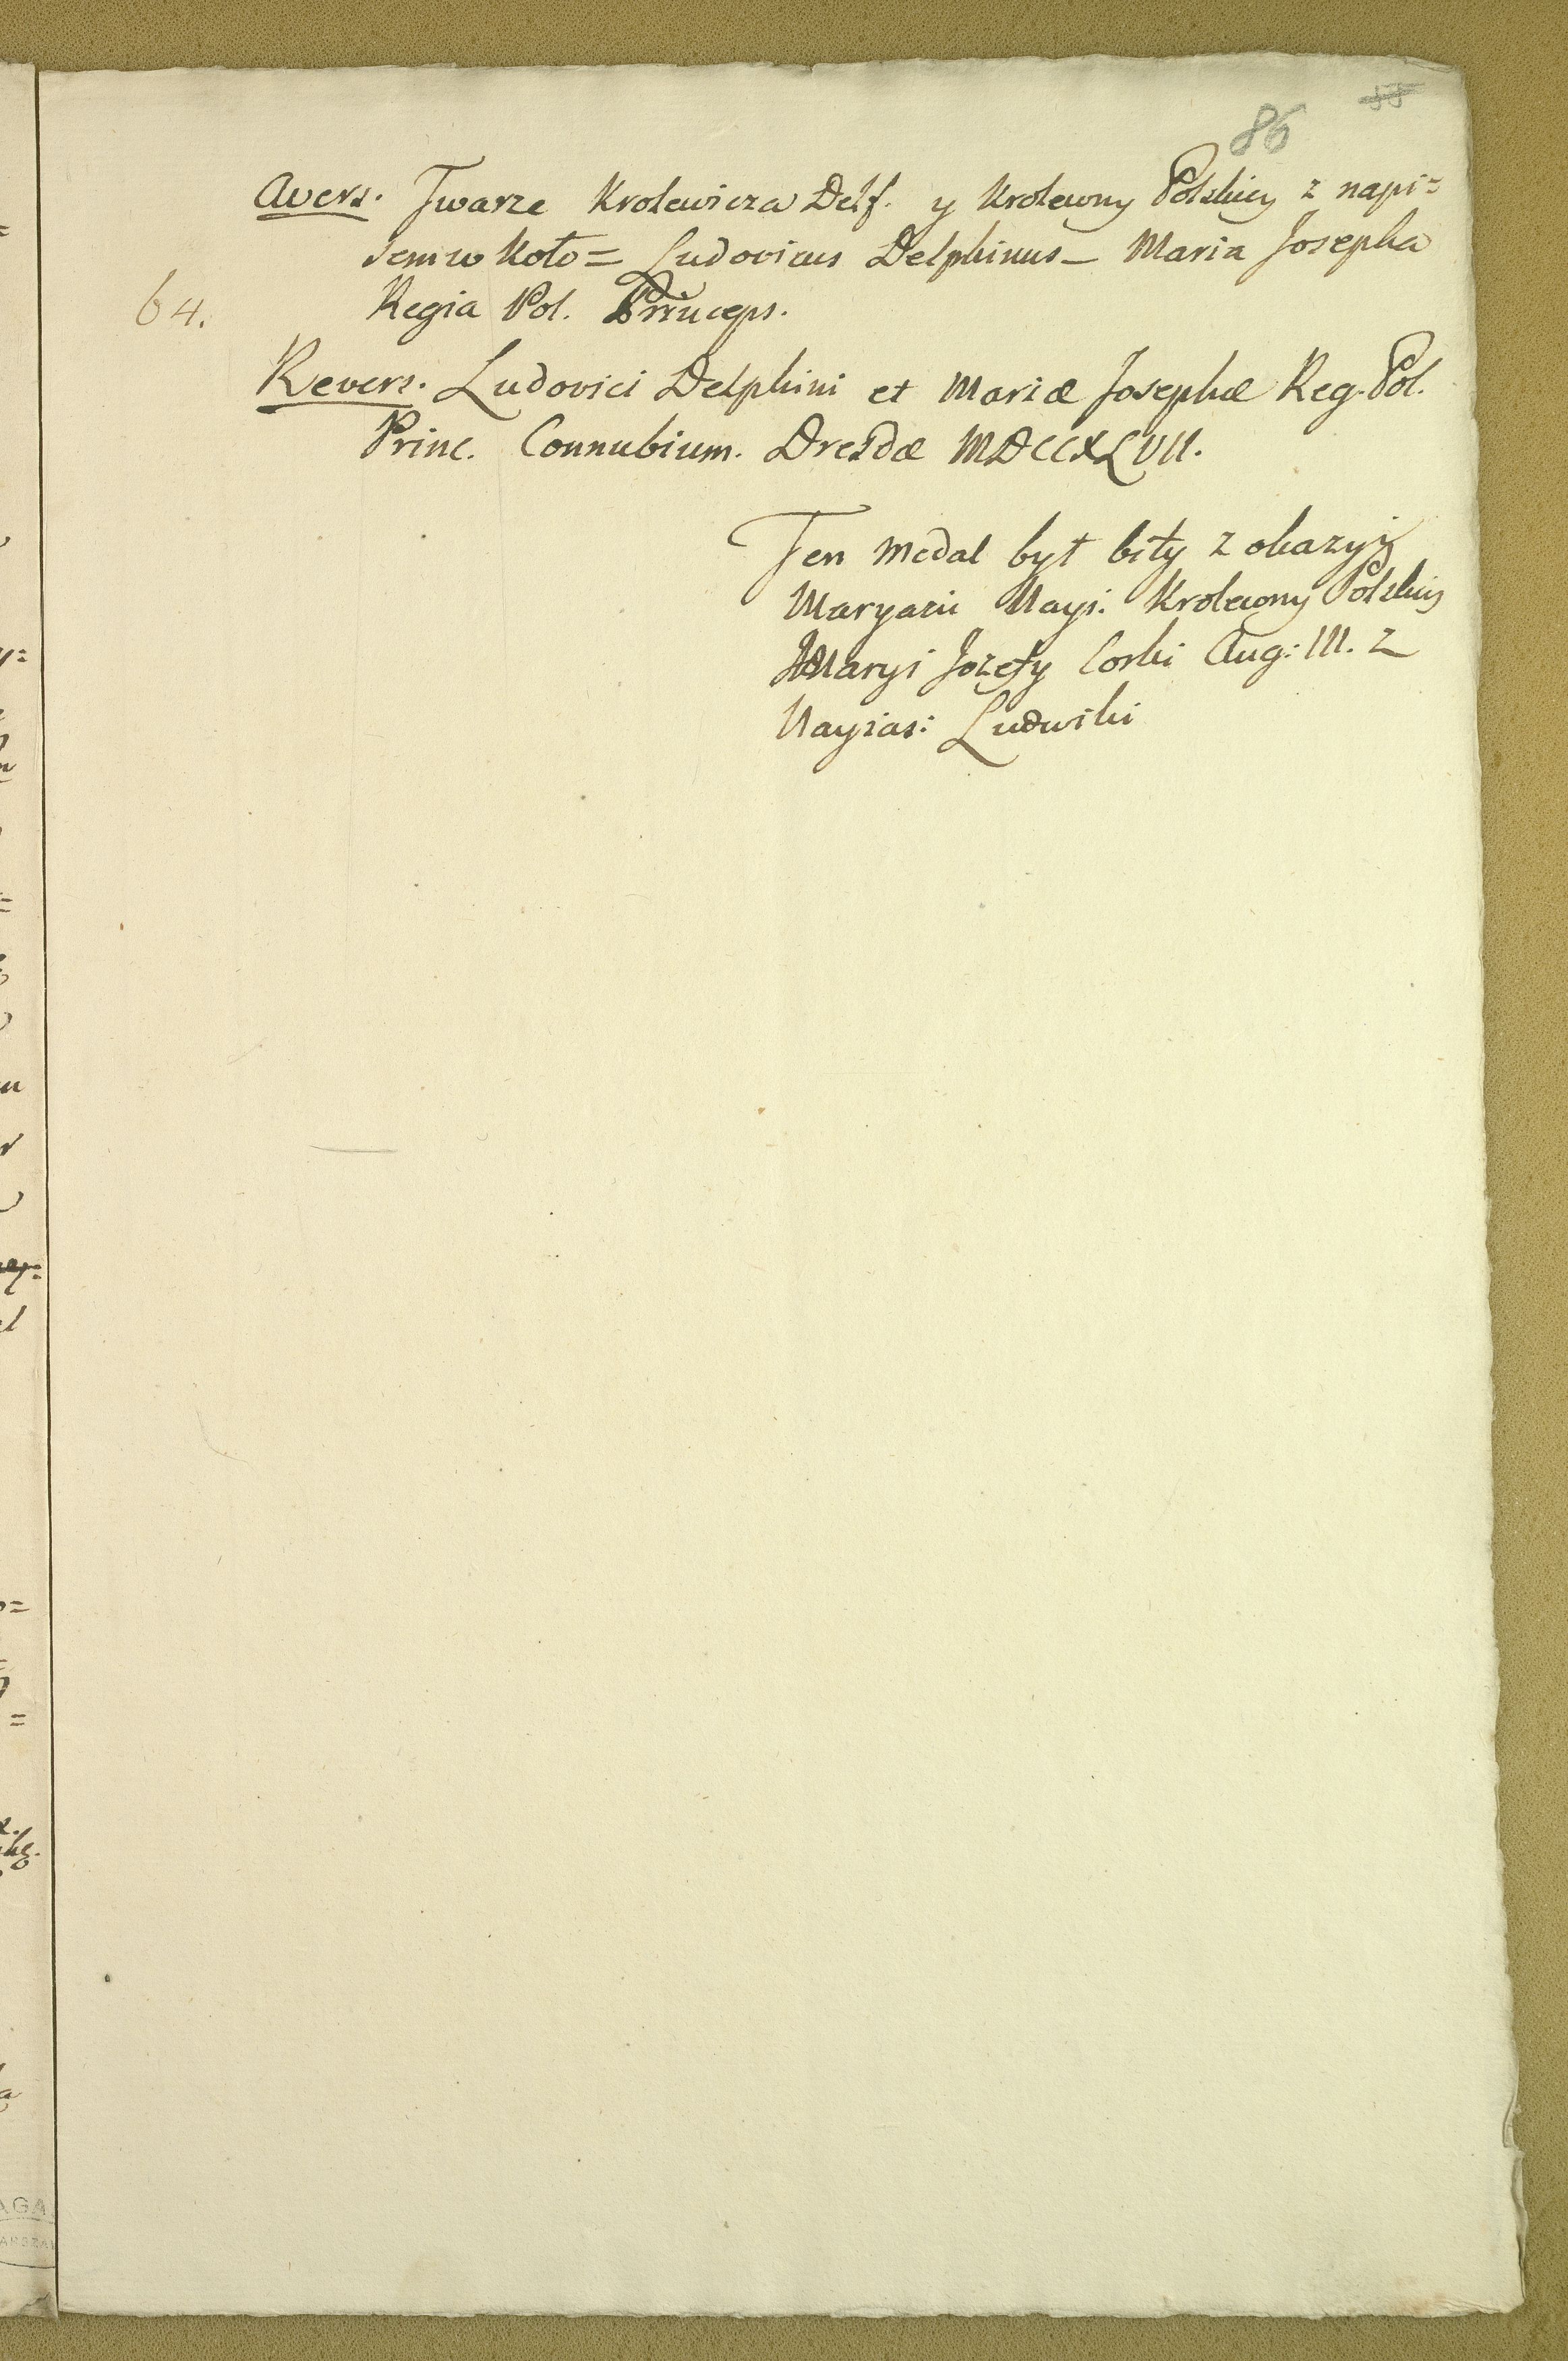 86 55
Avers. Twarze Krolewicza Delf. y Krolewny Polskiey z napi=
sem w koło= Ludovicus Delphinus – Maria Josepha
64. Regia Pol. Princeps.
Revers. Ludovici Delphini et Mariæ Josephæ Reg. Pol.
Princ. Connubium. Dresdæ MDCCXLVII.
Ten medal był biły z okazyi
Maryazu Nayi: Krolewny Polskiey
Maryi Jozefy Corki Aug: III. z
Nayias: Ludwiki